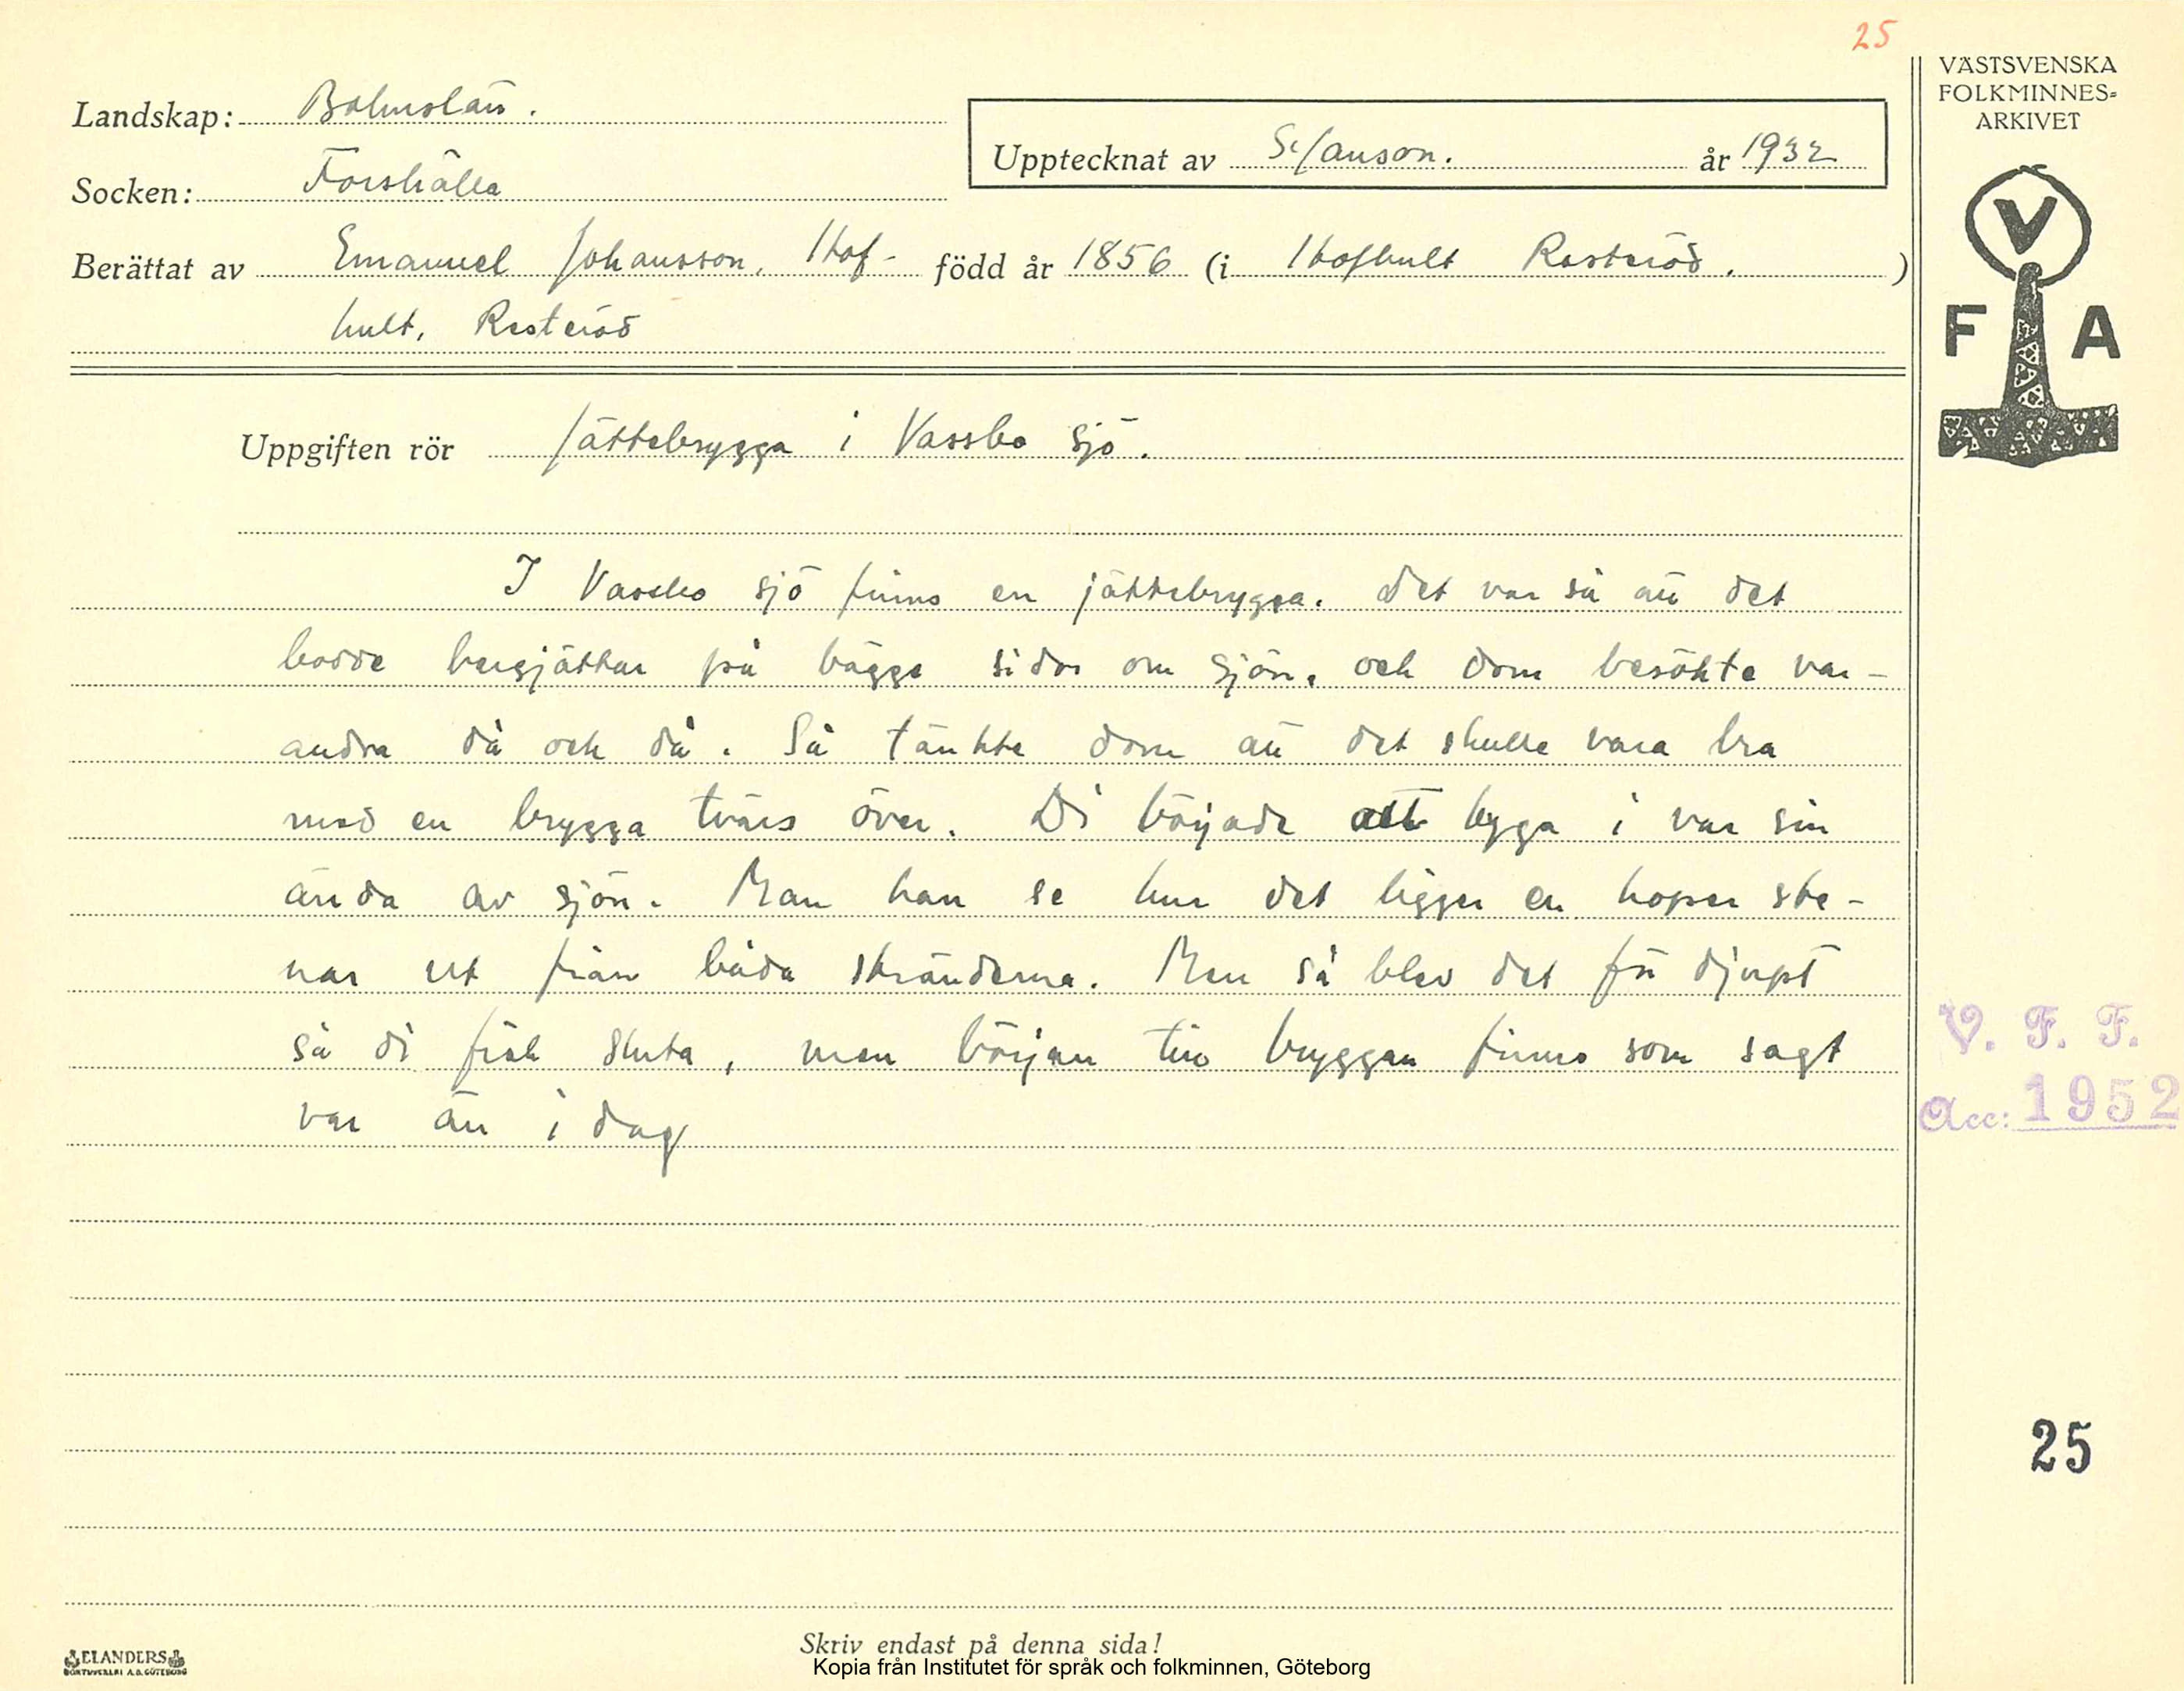 25
VÄSTSVENSKA
FOLKMINNES=
ARKIVET
Landskap: Bohuslän.
Upptecknat av S. Janson. år 1932
Socken: Forshälla
Berättat av Emanuel Johansson, Hof- född år 1856 (i Hofhult Resteröd.)
hult, Resteröd
V
F A
Uppgiften rör Jättebrygga i Vassbo sjö.
I Vassbo sjö finns en jättebrygga. Det var så att det
bodde bergjättar på bägge sidor om sjön, och dom besökte var-
andra då och då. Så tänkte dom att det skulle vara bra
med en brygga tvärs över. Di började att bygga i var sin
ända av sjön. Man kan se hur det ligger en hoper ste-
nar ut från båda stränderna. Men så blev det för djupt
så di fick sluta, men början till bryggan finns som sagt
var än i dag
V. F. F.
Acc: 1952
25
Skriv endast på denna sida!
ELANDERS
BOKTRYCKERI A.B. GÖTEBORG
Kopia från Institutet för språk och folkminnen, Göteborg